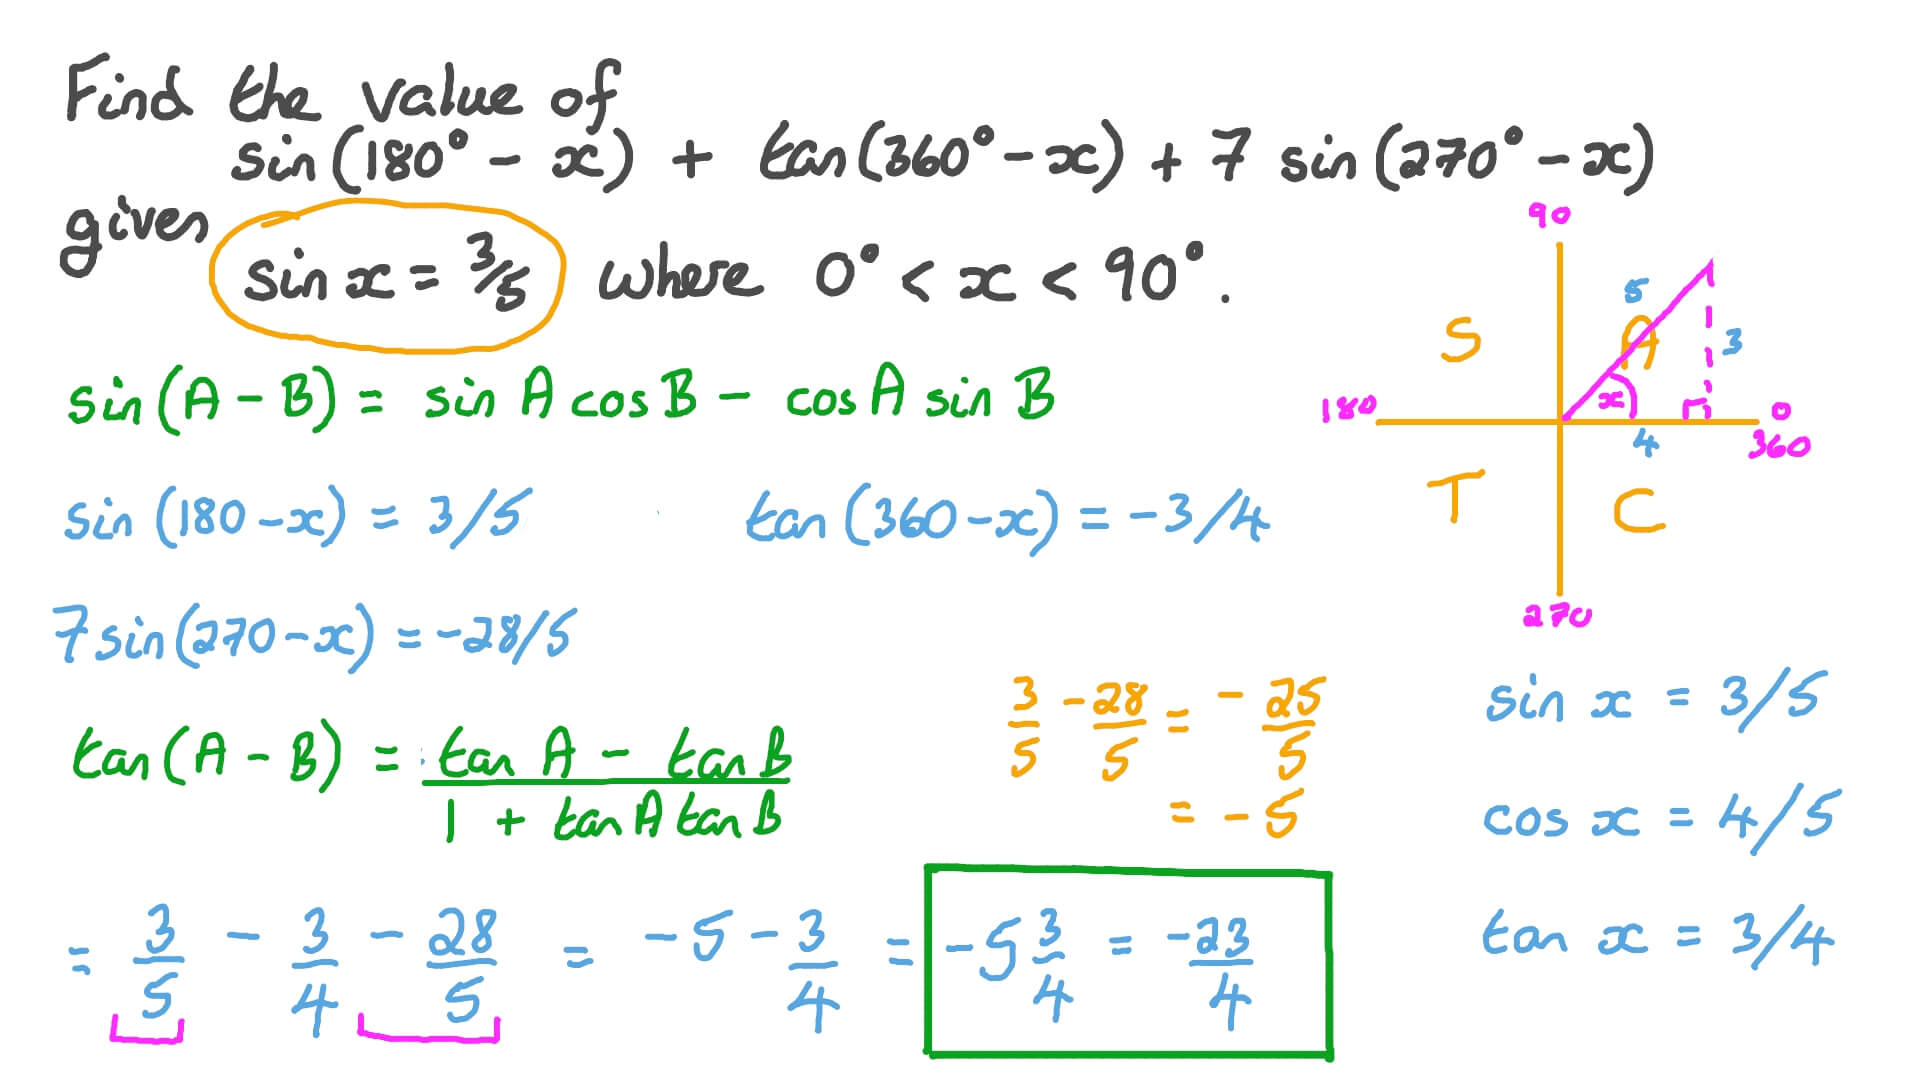 Find the value of
sin(180° - x) + tan(360° - x) + 7 sin(270° - x)
given sin x = 3/5 where 0° < x < 90°.
90
S
A
5
3
x
4
180
0
360
T
C
270
sin(A - B) = sin A cos B - cos A sin B
sin (180 - x) = 3/5
tan (360 - x) = -3/4
7 sin(270 - x) = -28/5
tan(A - B) = tan A - tan B / 1 + tan A tan B
3/5 - 28/5 = - 25/5
= - 5
sin x = 3/5
cos x = 4/5
tan x = 3/4
= 3/5 - 3/4 - 28/5 = -5 - 3/4 = -5 3/4 = -23/4